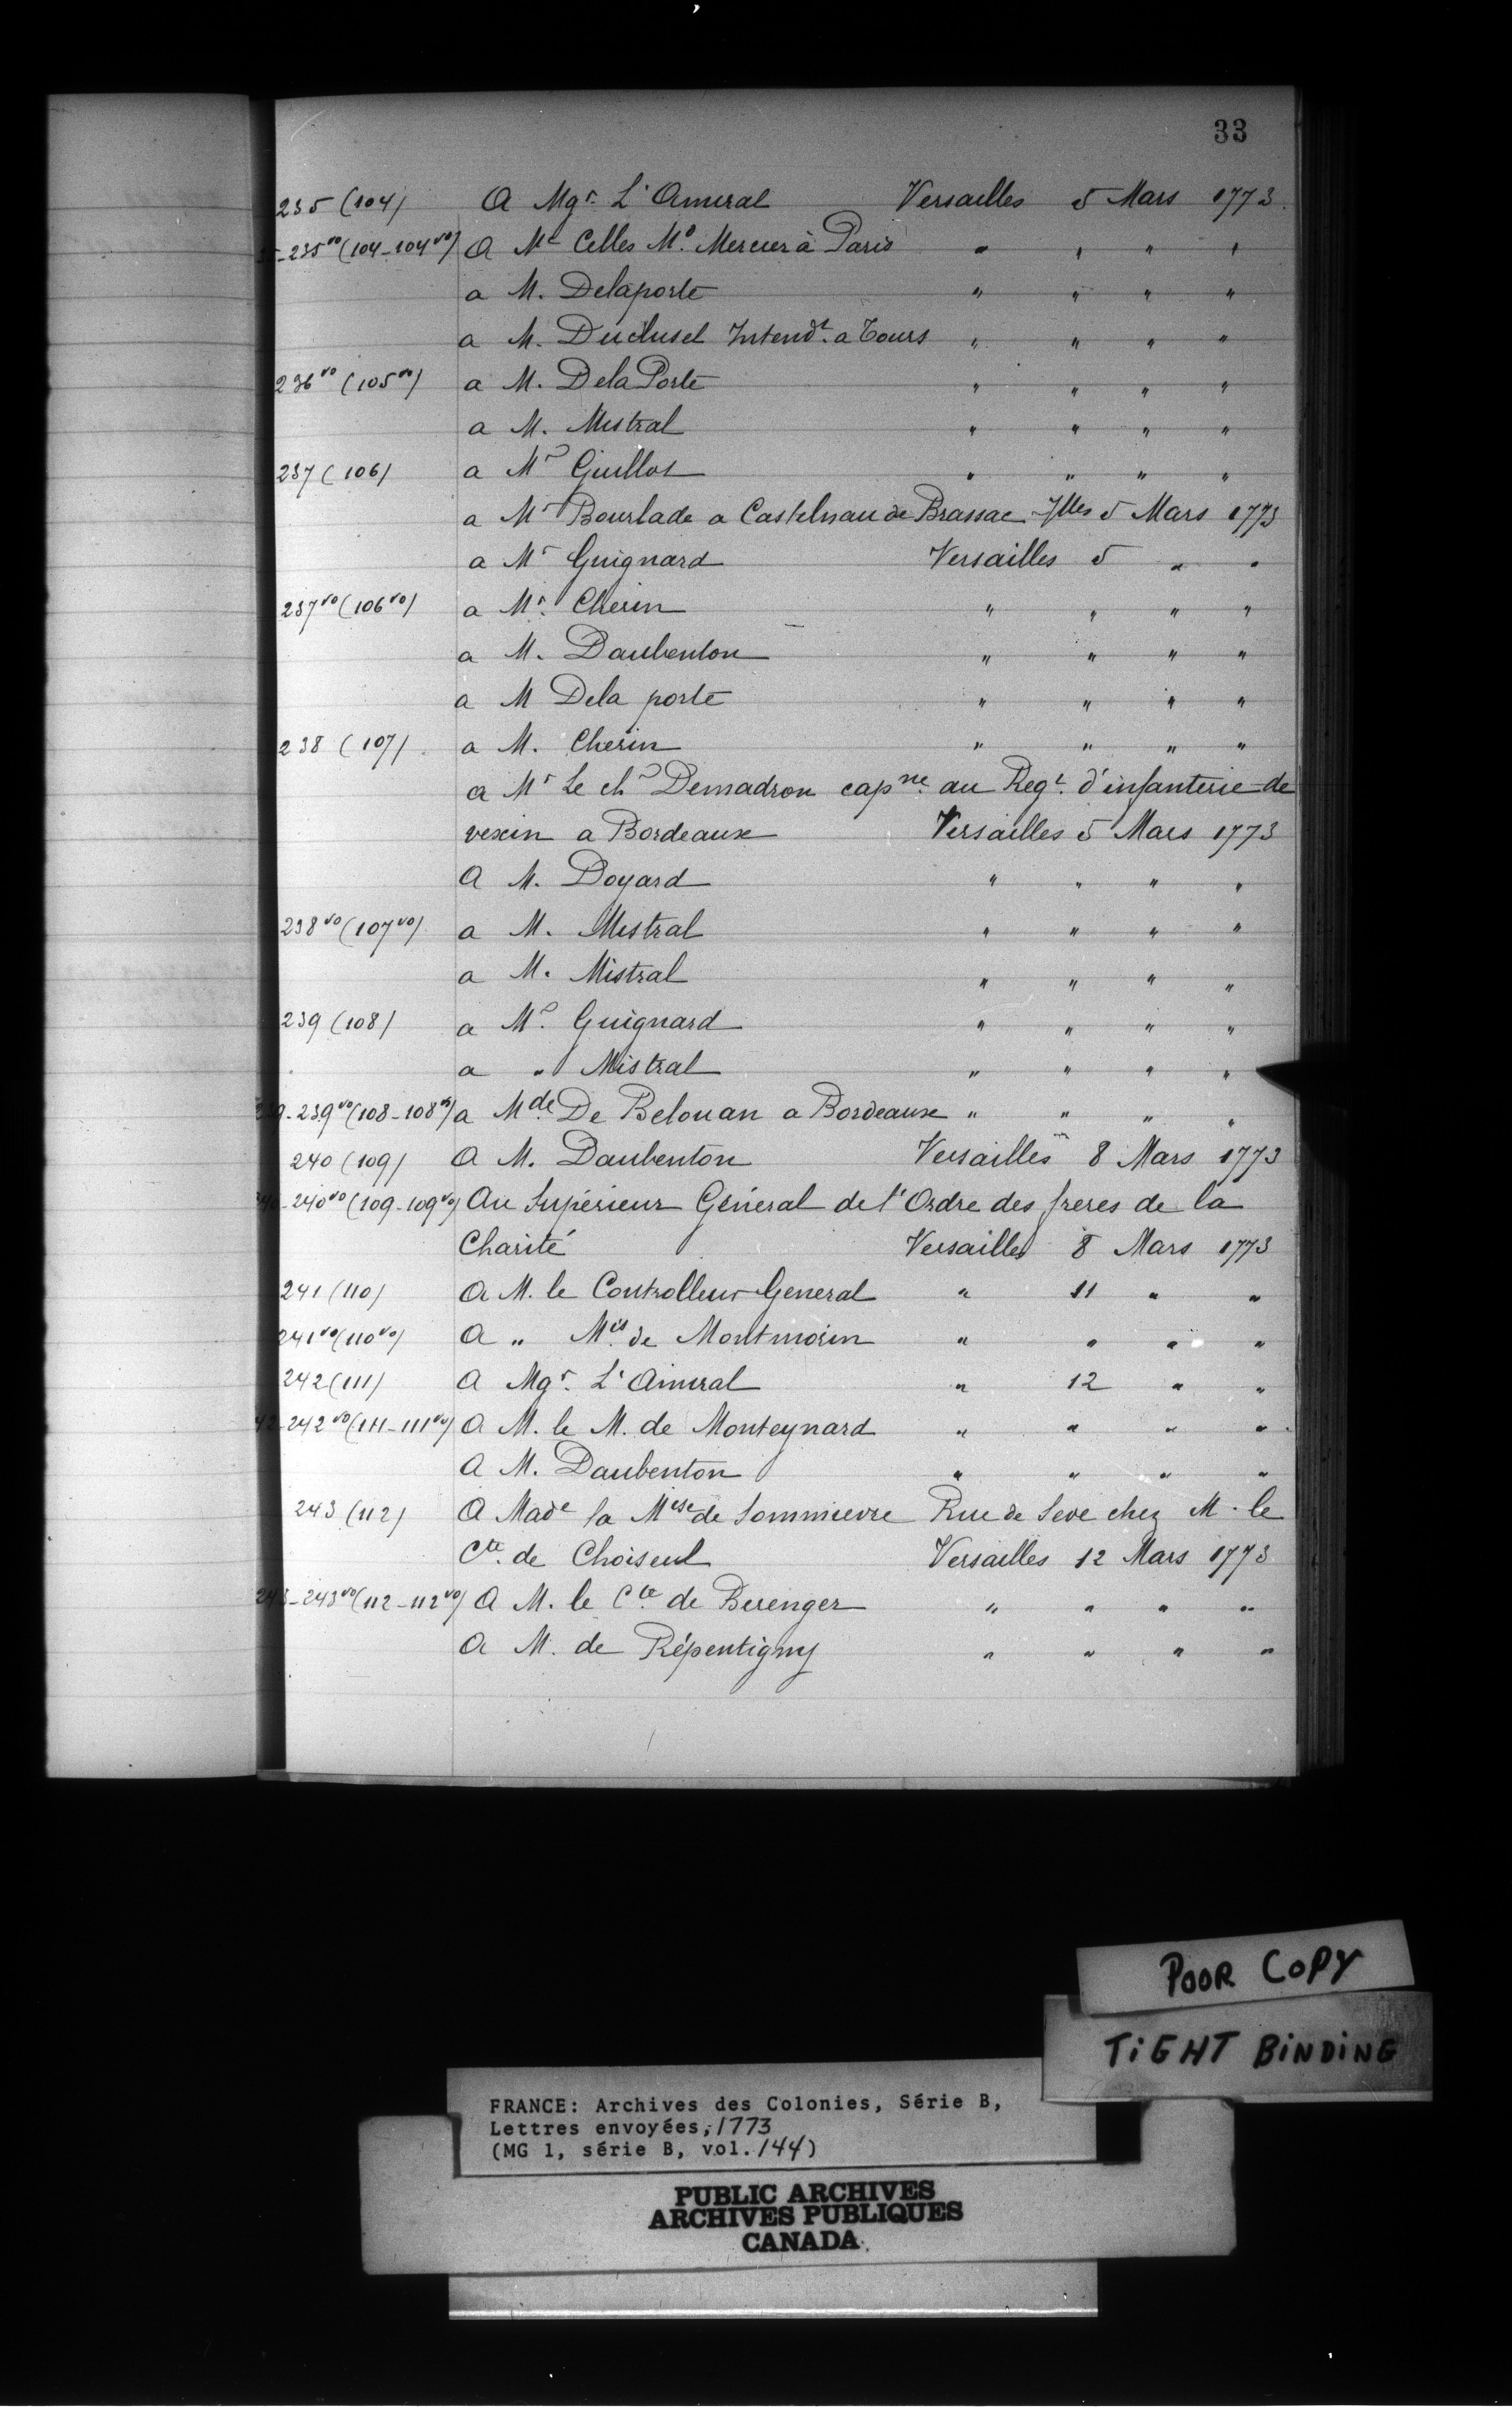 33
235 (104) A Mgr L'Amiral Versailles 5 Mars 1773.
-235vo (104-104vo) A Me Celles Md Mercier à Paris " " " "
a M. Delaporte " " " "
a M. Ducluzel Intendt a Tours " " " "
236vo (105vo) a M. DelaPorte " " " "
a M. Mistral " " " "
237 (106) a Mr Guillot " " " "
a Mr Bourlade a Castelnau de Brassac Vlles 5 Mars 1773
a Mr Guignard Versailles 5 " "
237vo (106vo) a Mr. Cherin " " " "
a M. Daubenton " " " "
a M Dela porte " " " "
238 (107) a M. Cherin " " " "
a Mr Le chr Demadron capne au Regt. d'infanterie de
vexin a Bordeaux Versailles 5 Mars 1773
A M. Doyard " " " "
238vo (107vo) a M. Mistral " " " "
a M. Mistral " " " "
239 (108) a Mr Guignard " " " "
a " Mistral " " " "
239-239vo (108-108vo) a Mde De Belouan a Bordeaux " " " "
240 (109) A M. Daubenton Versailles 8 Mars 1773
240-240vo (109-109vo) Au Supérieur Général de l'Ordre des freres de la
Charité Versailles 8 Mars 1773
241 (110) A M. le Controlleur General " 11 " "
241vo (110vo) A " Mis de Montmorin " " " "
242 (111) A Mgr. L'Amiral " 12 " "
42-242vo (111-111vo) A M. le M. de Monteynard " " " "
A M. Daubenton " " " "
243 (112) A Made la Mise de Sommievre Rue de Seve chez M. le
Cte. de Choiseul Versailles 12 Mars 1773
243-243vo (112-112vo) A M. le Cte de Berenger " " " "
A M. de Répentigny " " " "
POOR COPY
TiGHT BiNDiNG
FRANCE: Archives des Colonies, Série B,
Lettres envoyées, 1773
(MG 1, série B, vol. 144)
PUBLIC ARCHIVES
ARCHIVES PUBLIQUES
CANADA